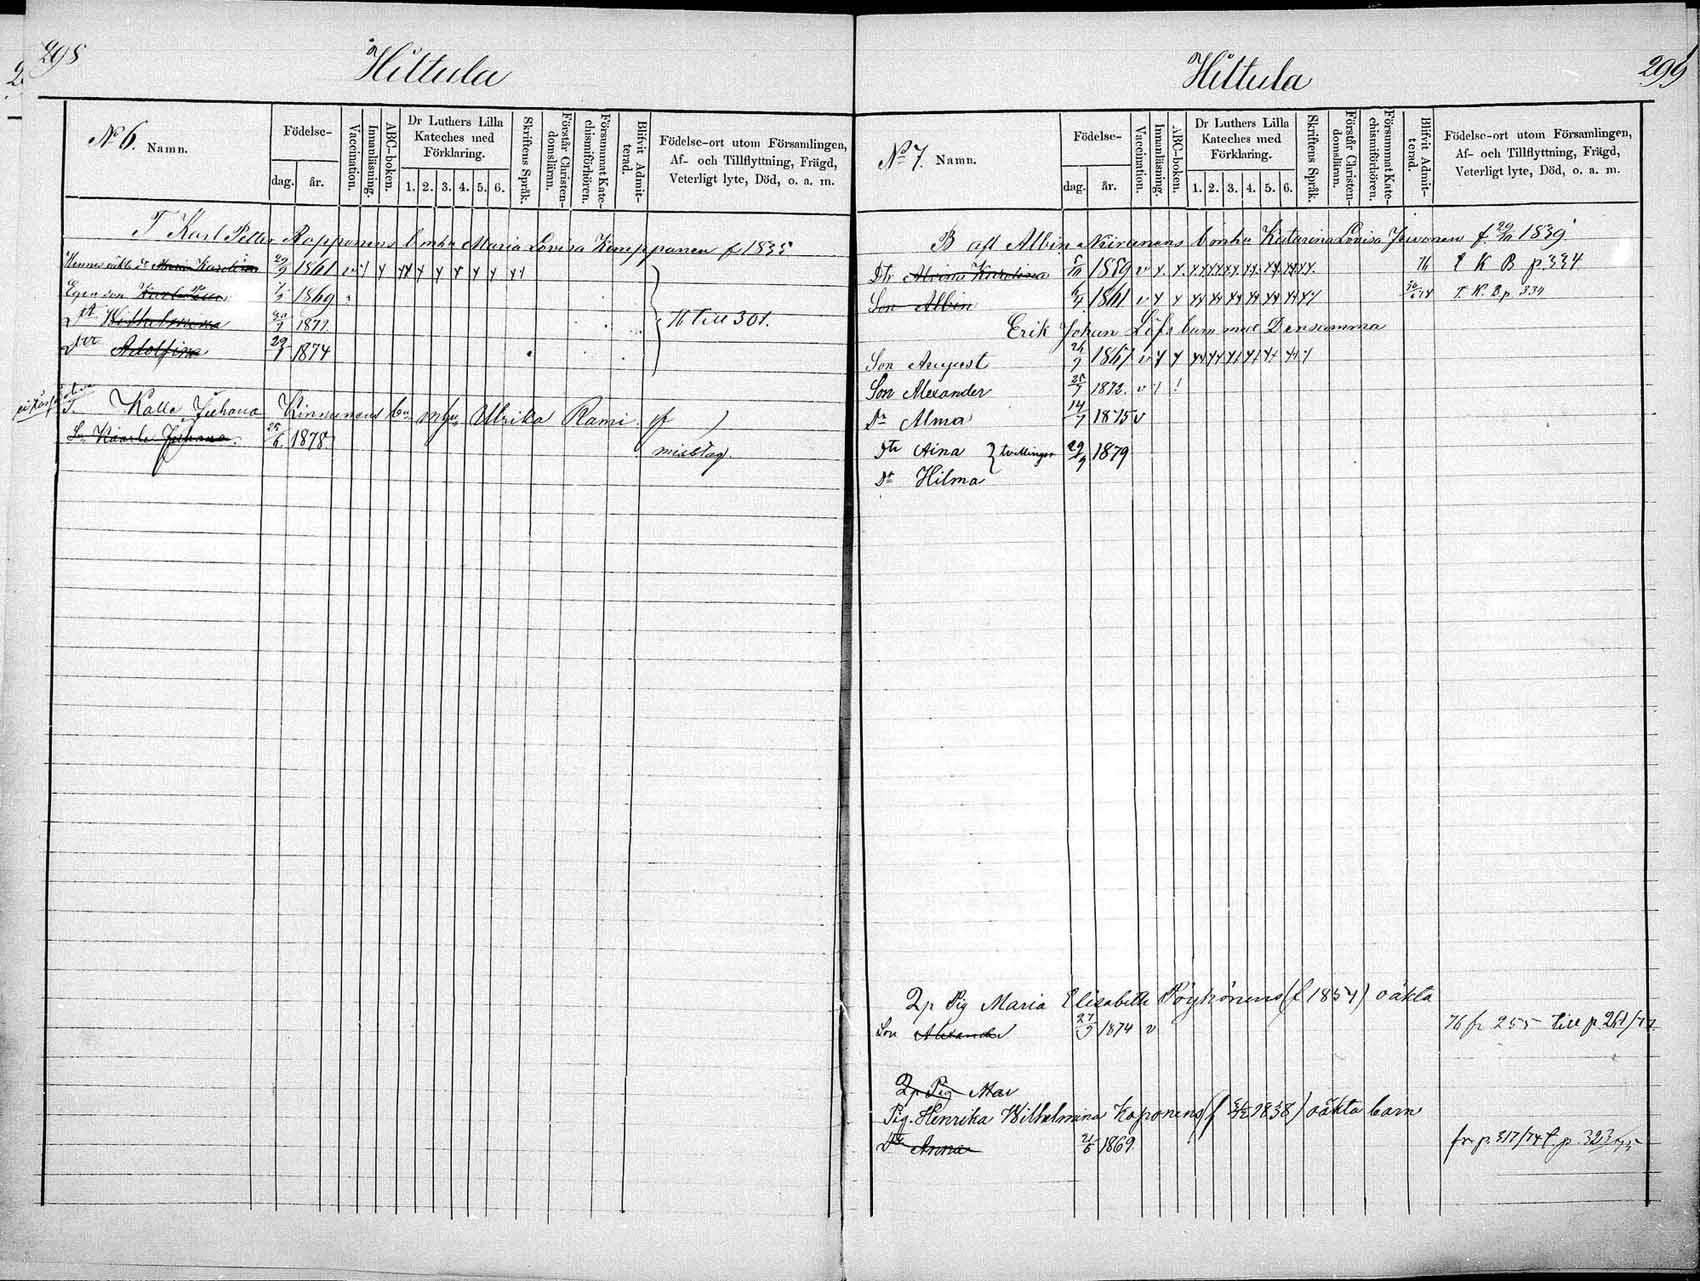 298
Hittula
No 6. Namn.
Födelse-
dag. år.
Vaccination.
Innanläsning.
ABC-boken.
Dr Luthers Lilla
Kateches med
Förklaring.
1. 2. 3. 4. 5. 6.
Skriftens Språk.
Förstår Christen-
domsläran.
Försummat Kate-
chismiförhören.
Blifvit Admit-
terad.
Födelse-ort utom Församlingen,
Af- och Tillflyttning, Frägd,
Veterligt lyte, Död, o. a. m.
T Karl Petter Ropponens b m hu Maria Lovisa Kemppanen f 1835
Hennes oäkta dr Karolina 29/9 1861
Egen son Karl 1869
Dtr Wilhelmina 1871
Dtr Adolfina 29/1 1874
76 till 301.
T. Kalle Juhana Kinnunens bn m hu Ulrika Rami
Sn Kaarle Juhana 25/6 1878
misstag.
299
Hittula
No 7. Namn.
Födelse-
dag. år.
Vaccination.
Innanläsning.
ABC-boken.
Dr Luthers Lilla
Kateches med
Förklaring.
1. 2. 3. 4. 5. 6.
Skriftens Språk.
Förstår Christen-
domsläran.
Försummat Kate-
chismiförhören.
Blifvit Admit-
terad.
Födelse-ort utom Församlingen,
Af- och Tillflyttning, Frägd,
Veterligt lyte, Död, o. a. m.
B afl Albin Neiranens b m hu Katarina Lovisa f. 1839
Dtr 5/10 1859 76 K B p 334
Son Albin 1861 T. K. B. p 334
Erik Johan Löfs barn med Densamma
Son August 26/9 1867
Son Alexander 25/7 1872.
Dr Alma 14/7 1875
Dtr Aina } tvillingar 29/9 1879
Dr Hilma
2p Pig Maria Elisabeth Pöykönens (f 1854) oäkta
Son Alexander 27/9 1874 76 fr 255 till p 261/77
2p Pig Mar
Pig. Henrika Wilhelmina Koponens (f 1838) oäkta barn
Dtr Anna 21/6 1869 fr p 317/74 t p 323/75